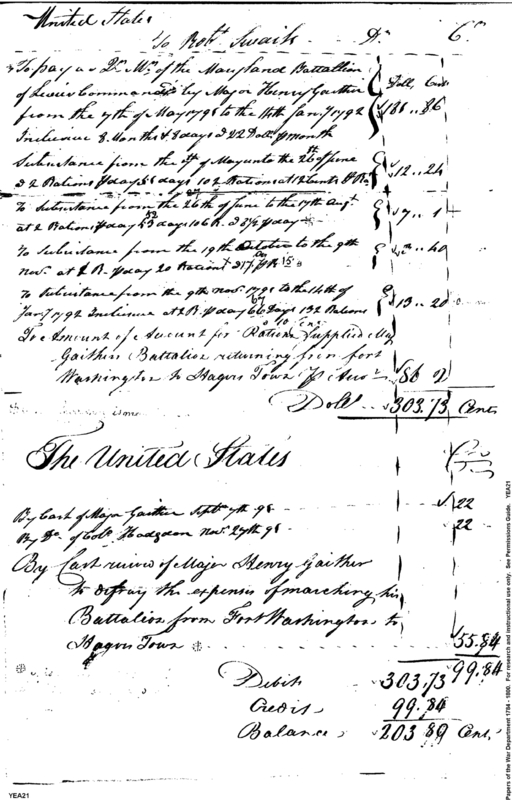 United States
To Robt Swails Dr. Cr
To pay as Qr Mr. of the Maryland Battallion Doll, Cents
of Levies Commanded by Major Henry Gaither
from the 7th of May 1791 to the 14th Jany 1792 181 .. 86
Inclusive 8 Months & 8 days @ 22 Dolls p month
Subsistance from the of May unto the 26th of June
@ 2 Rations p day 51 days 102 Rations at 12 Cents p R 12 .. 24
To Subsistance from the 26th of June to the 17th Augt
at 2 Rations p day 53 days 106 R. @ p day 7 .. 1
To Subsistance from the 19th October to the 9th
Novr at 2 R. p day 20 Rations p R 40
To Subsistance from the 9th Novr 1791 to the 14th of
Jany 1792 Inclusive at 2 R. p day 66 Days 132 Rations 13 .. 20
To Amount of Account for Rations Supplied Maj
Gaithers Battalion returning from fort
Washington to Hagers Town p 86 2
Dolls 303.73 Cents
The United States Cr
By Cash of Major Gaither Septr 7th 91 22
By Do. of Colo. Hodgdon Novr. 27th 91 22
By Cash recived of Major Henry Gaither
to defray the expenses of marching his
Battalion from Fort Washington to
Hagers Town 55.84
99.84
Debit 303.73
Credit 99.84
Ballance 203 89 Cents
YEA21
Papers of the War Department 1784 - 1800. For research and instructional use only. See Permissions Guide. YEA21